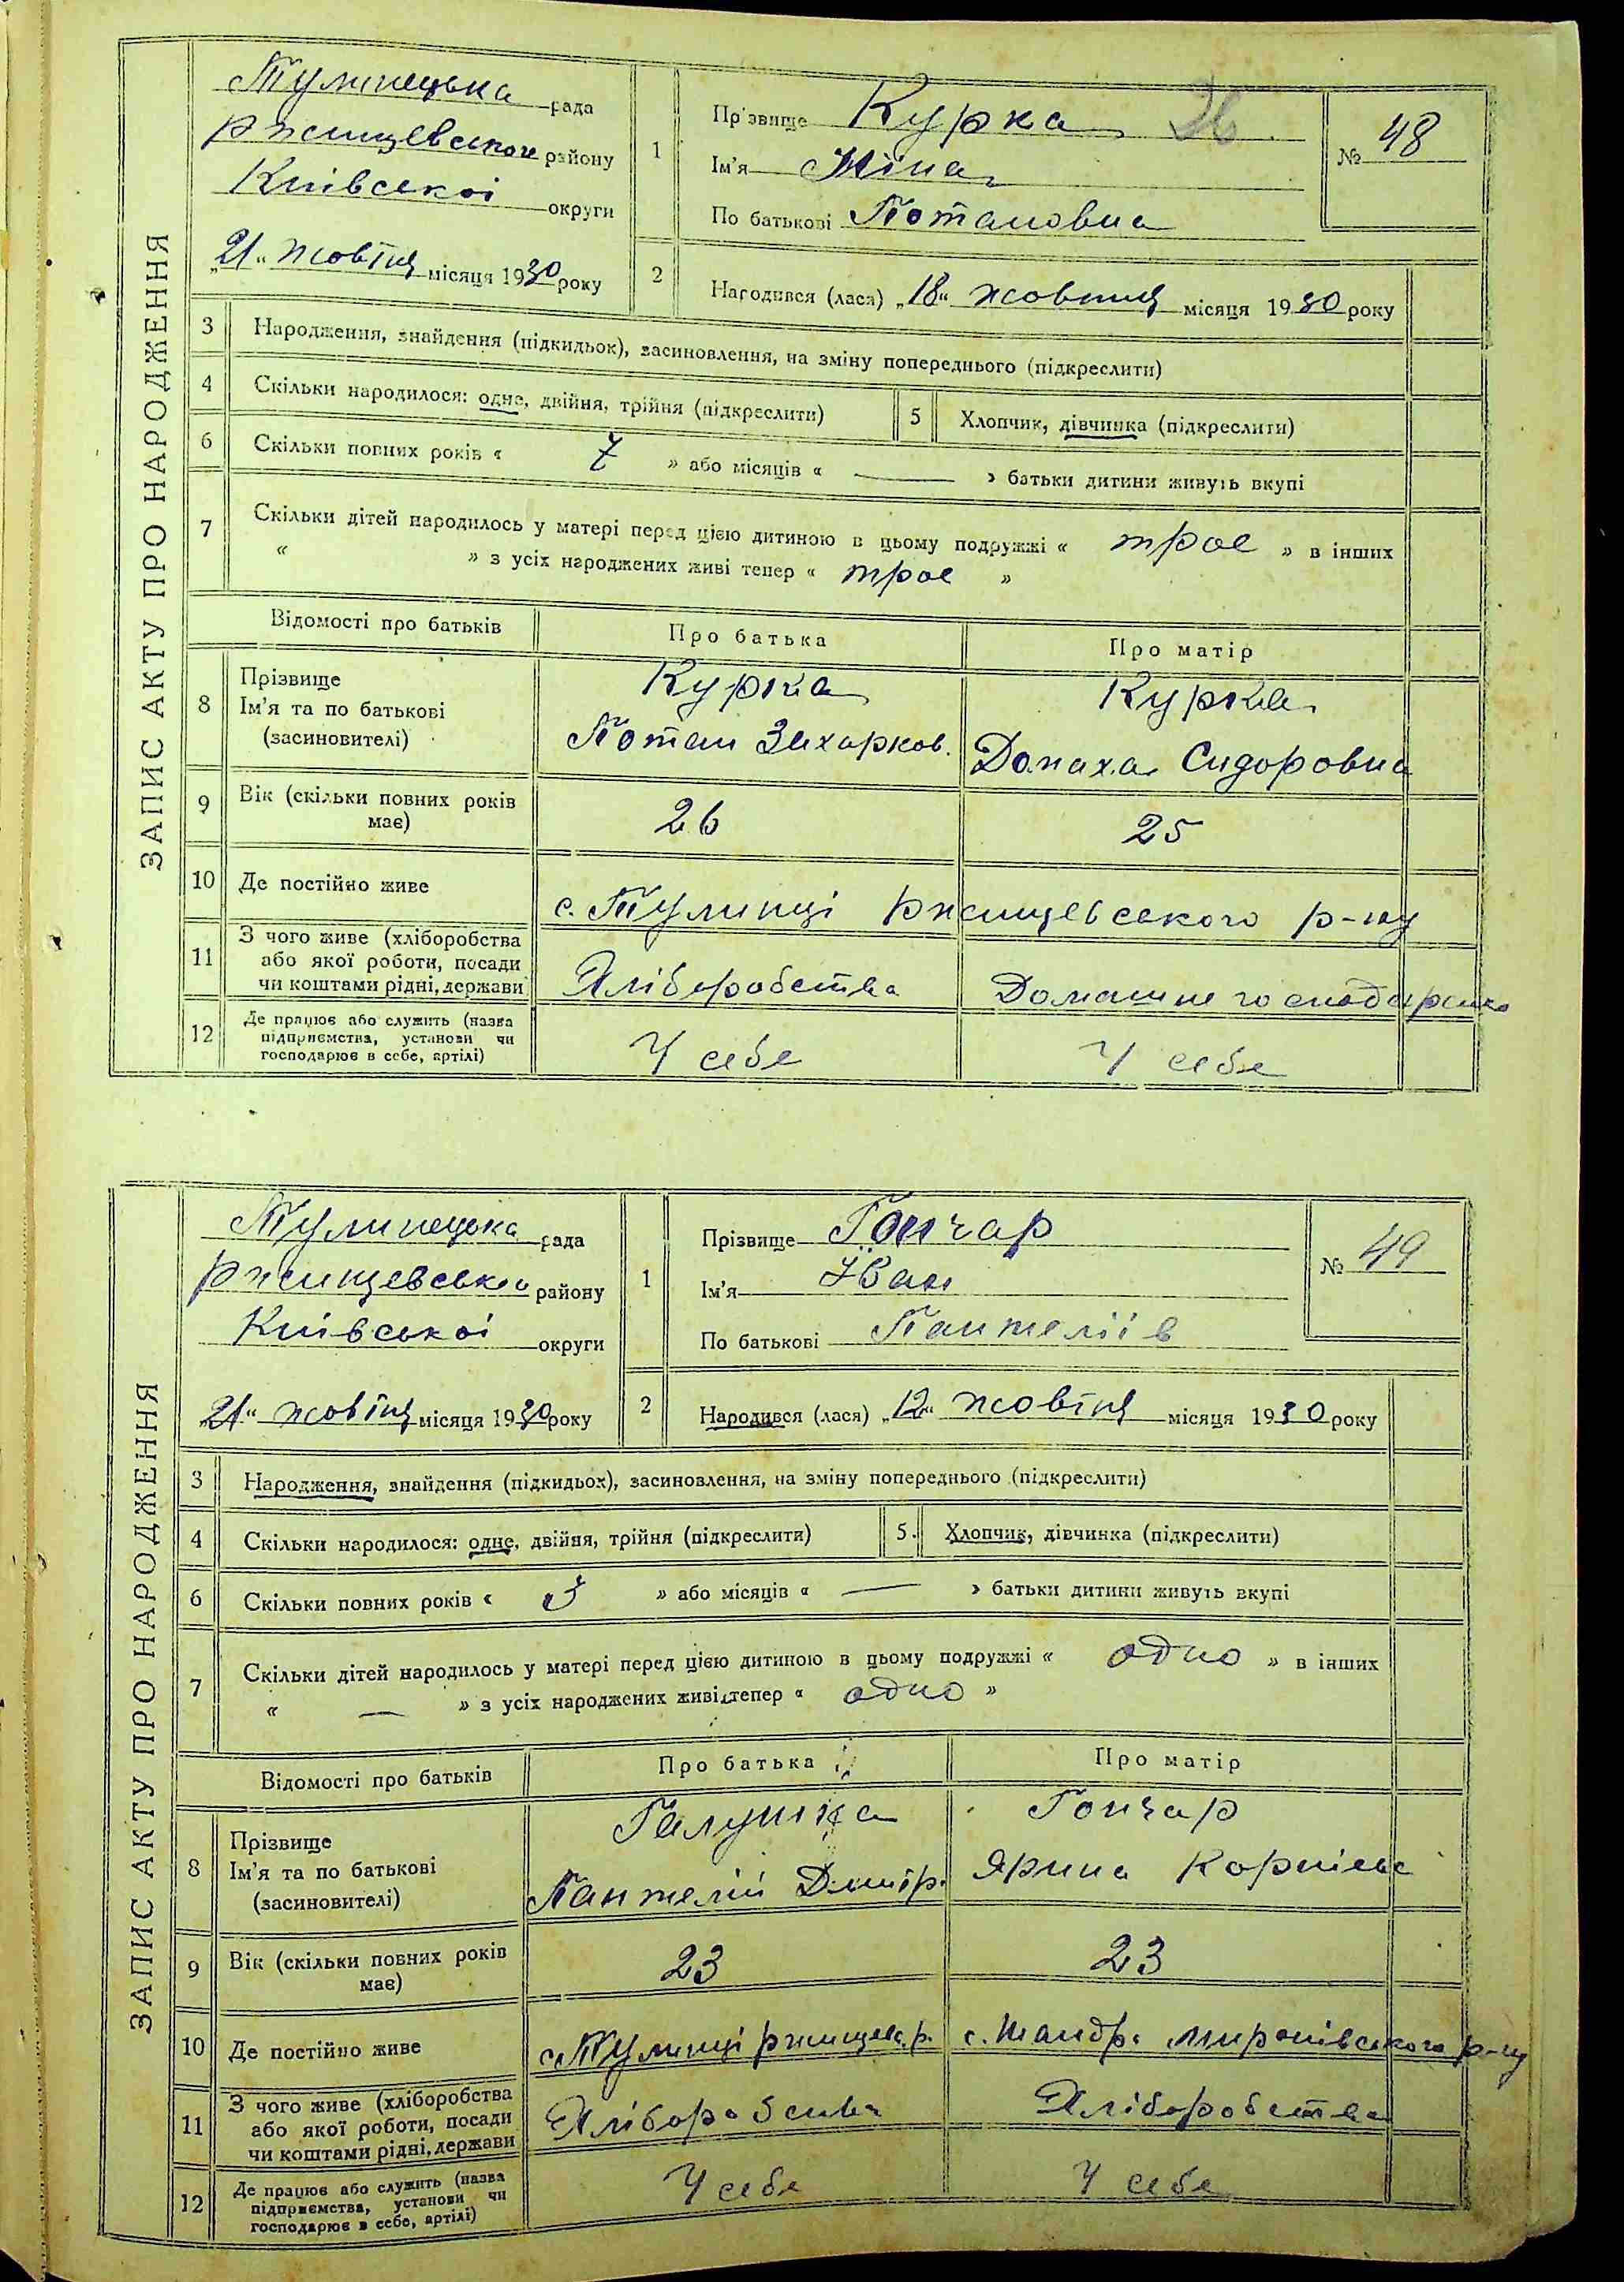 ЗАПИС АКТУ ПРО НАРОДЖЕННЯ
Тулинецька рада
Ржищевського району
Київської округи
„21“ жовтня місяця 1930 року
1 Прізвище Курка
Ім'я Ніна
По батькові Потаповна
№ 48
2 Народився (лася) „18“ жовтня місяця 1930 року
3 Народження, знайдення (підкидьок), засиновлення, на зміну попереднього (підкреслити)
4 Скільки народилося: одне, двійня, трійня (підкреслити) 5 Хлопчик, дівчинка (підкреслити)
6 Скільки повних років « 7 » або місяців « — » батьки дитини живуть вкупі
7 Скільки дітей народилось у матері перед цією дитиною в цьому подружжі « троє » в інших
« » з усіх народжених живі тепер « троє »
Відомості про батьків Про батька Про матір
8 Прізвище Ім'я та по батькові (засиновителі)
Курка Потап Захарков.
Курка Домаха Сидоровна
9 Вік (скільки повних років має) 26 25
10 Де постійно живе с. Тулинці Ржищевського р-ну
11 З чого живе (хліборобства або якої роботи, посади чи коштами рідні, держави
Хліборобства Домашне господарство
12 Де працює або служить (назва підприємства, установи чи господарює в себе, артілі)
У себе У себе
ЗАПИС АКТУ ПРО НАРОДЖЕННЯ
Тулинецька рада
Ржищевсько району
Київської округи
„21“ жовтня місяця 1930 року
1 Прізвище Гончар
Ім'я Іван
По батькові Пантеліїв
№ 49
2 Народився (лася) „12“ жовтня місяця 1930 року
3 Народження, знайдення (підкидьок), засиновлення, на зміну попереднього (підкреслити)
4 Скільки народилося: одне, двійня, трійня (підкреслити) 5. Хлопчик, дівчинка (підкреслити)
6 Скільки повних років « 3 » або місяців « — » батьки дитини живуть вкупі
7 Скільки дітей народилось у матері перед цією дитиною в цьому подружжі « одно » в інших
« — » з усіх народжених живі тепер « одно »
Відомості про батьків Про батька Про матір
8 Прізвище Ім'я та по батькові (засиновителі)
Галушка Пантелій Дмитр.
Гончар Ярина Корнієв
9 Вік (скільки повних років має) 23 23
10 Де постійно живе с. Тулинці Ржищев. р. с. Шандра Миронівського р-ну
11 З чого живе (хліборобства або якої роботи, посади чи коштами рідні, держави
Хліборобства Хліборобства
12 Де працює або служить (назва підприємства, установи чи господарює в себе, артілі)
У себе У себе